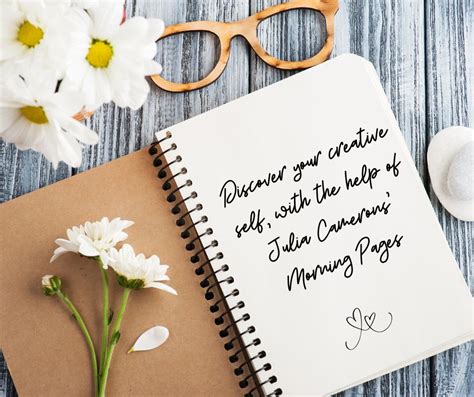 Discover your creative
self, with the help of
Julia Camerons'
Morning Pages